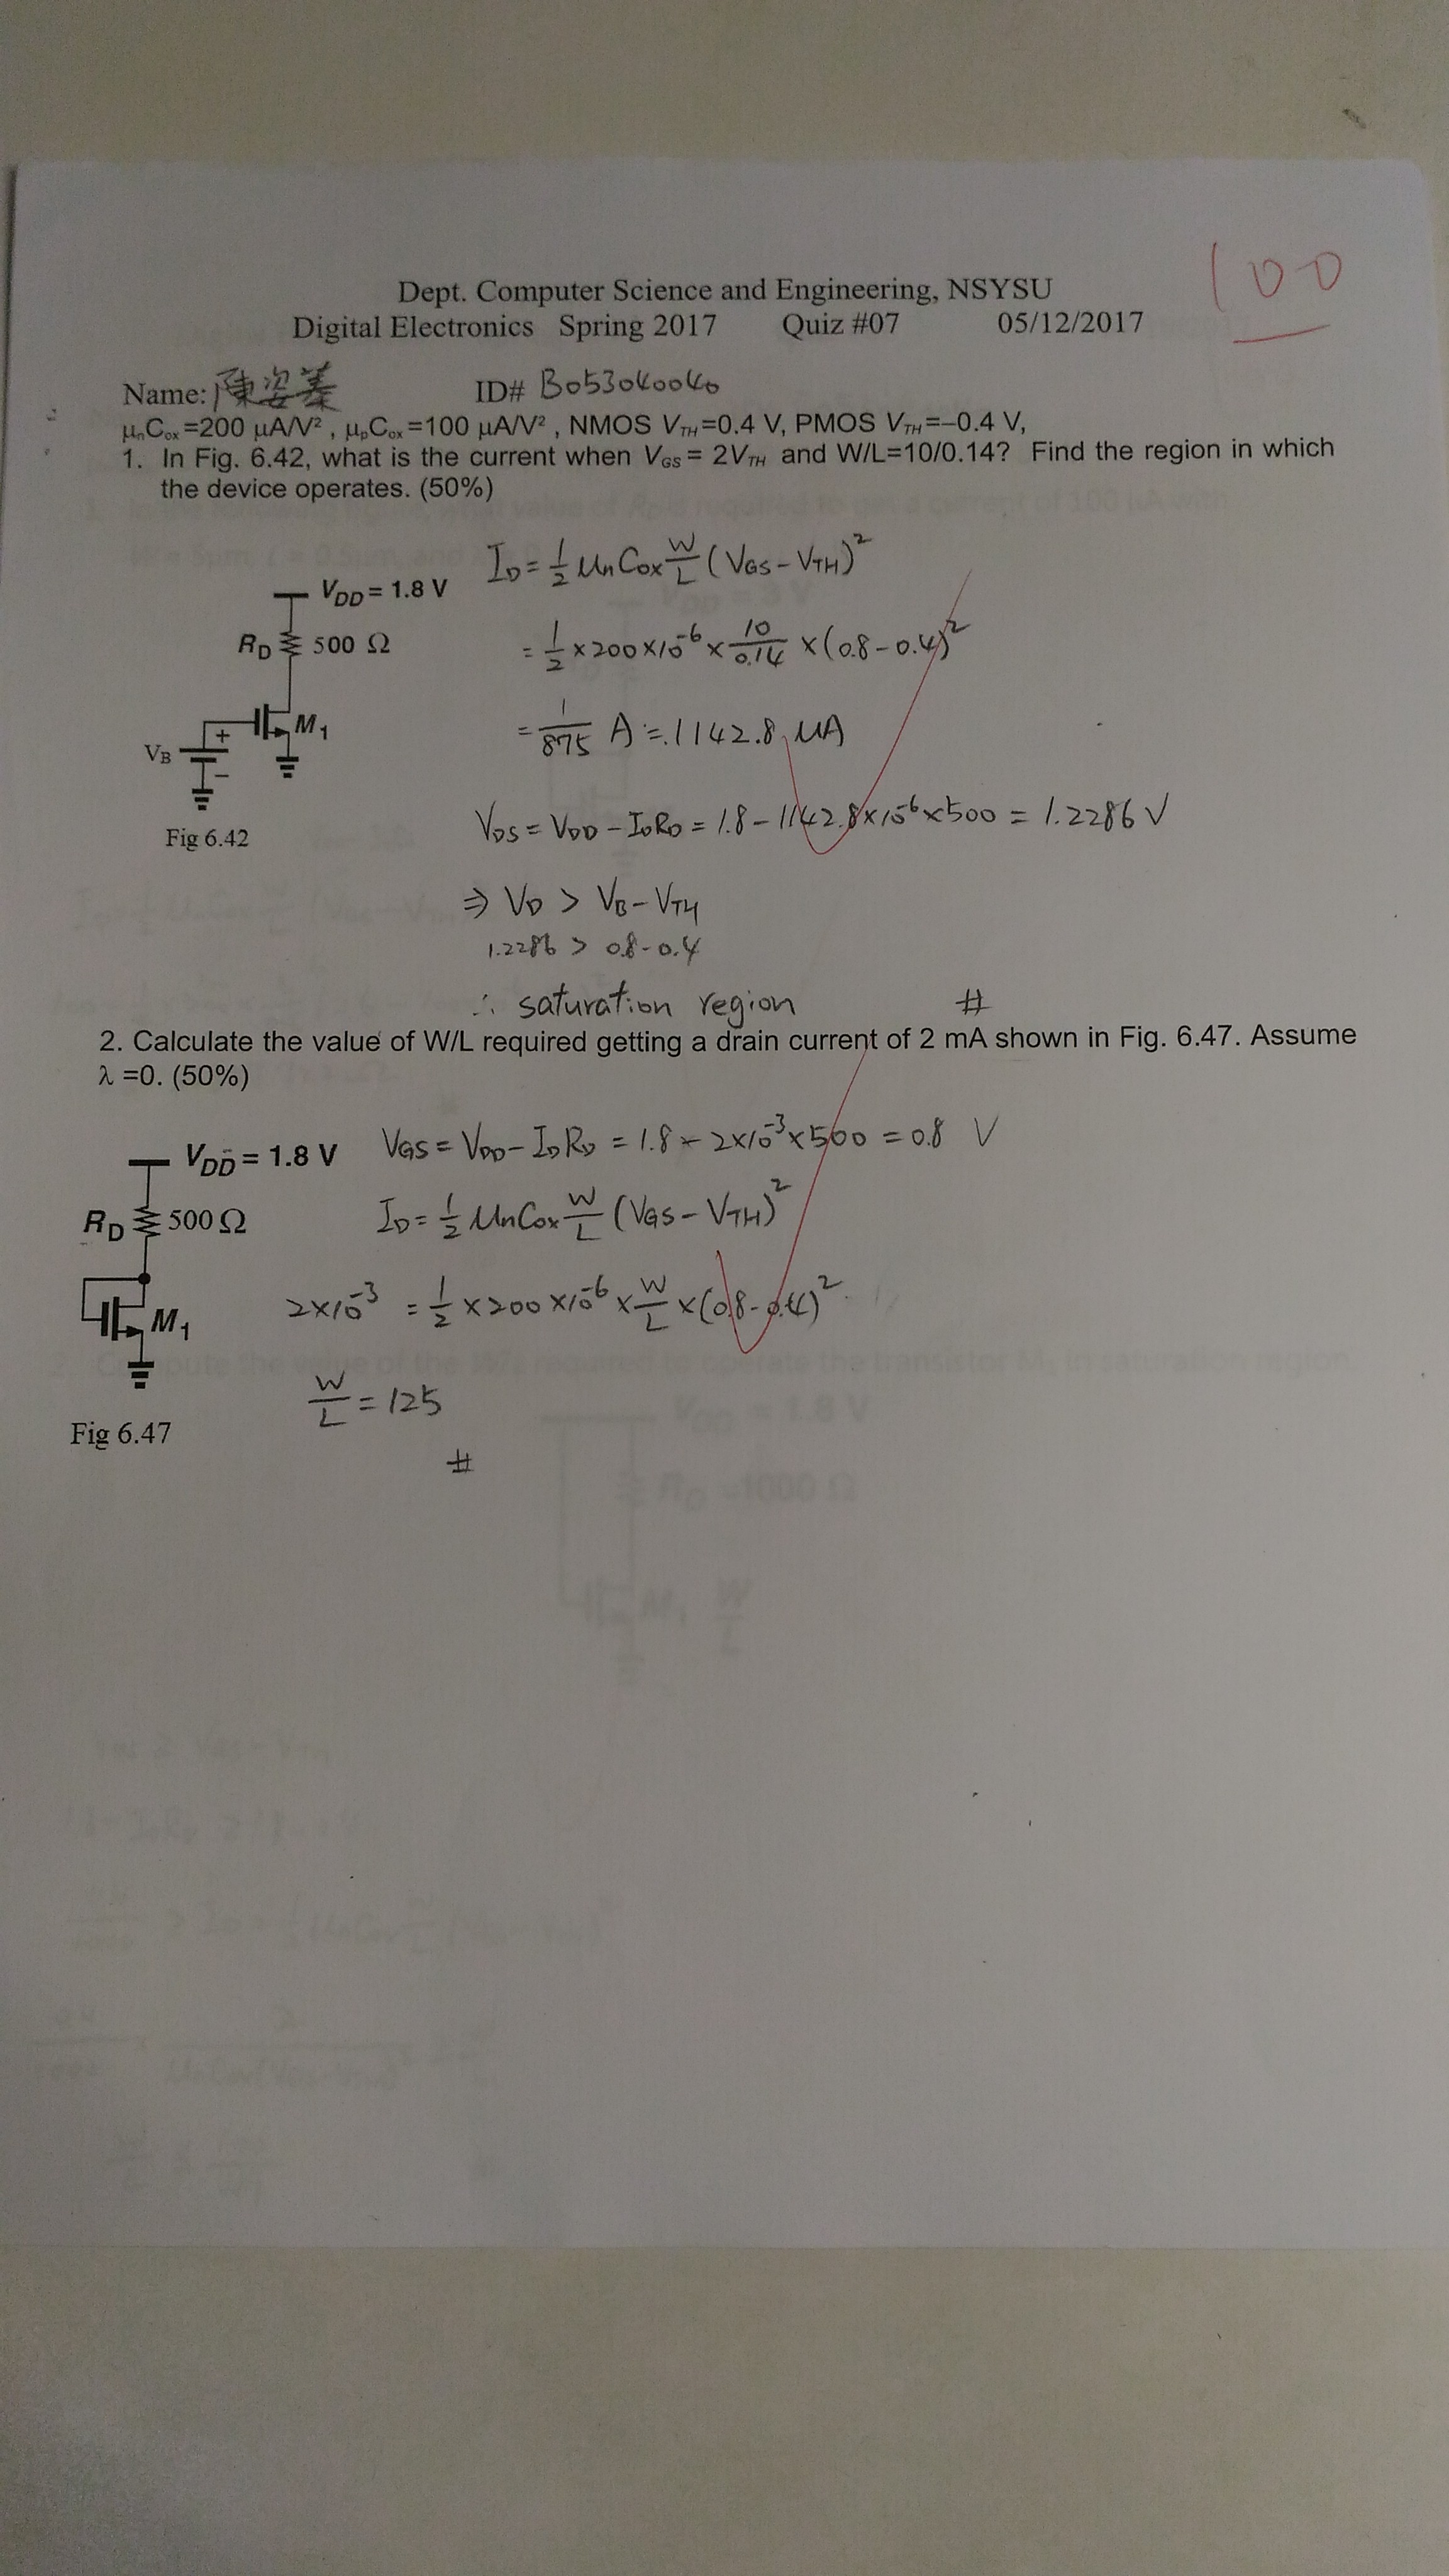 100
Dept. Computer Science and Engineering, NSYSU
Digital Electronics Spring 2017 Quiz #07 05/12/2017
Name: 陳姿蓁 ID# B053040040
μnCox=200 μA/V², μpCox=100 μA/V², NMOS VTH=0.4 V, PMOS VTH=−0.4 V,
1. In Fig. 6.42, what is the current when VGS = 2VTH and W/L=10/0.14? Find the region in which
the device operates. (50%)
ID = 1/2 μnCox W/L (VGS − VTH)²
VDD = 1.8 V
= 1/2 × 200 × 10⁻⁶ × 10/0.14 × (0.8 − 0.4)²
RD 500 Ω
= 1/875 A ≒ 1142.8 μA
M1
VB
+
−
VDS = VDD − IDRD = 1.8 − 1142.8×10⁻⁶×500 = 1.2286 V
Fig 6.42
⇒ VD > VB − VTH
1.2286 > 0.8 − 0.4
∴ saturation region #
2. Calculate the value of W/L required getting a drain current of 2 mA shown in Fig. 6.47. Assume
λ =0. (50%)
VGS = VDD − IDRD = 1.8 − 2×10⁻³×500 = 0.8 V
VDD = 1.8 V
ID = 1/2 μnCox W/L (VGS − VTH)²
RD 500 Ω
2×10⁻³ = 1/2 × 200 × 10⁻⁶ × W/L × (0.8 − 0.4)²
M1
W/L = 125
Fig 6.47
#